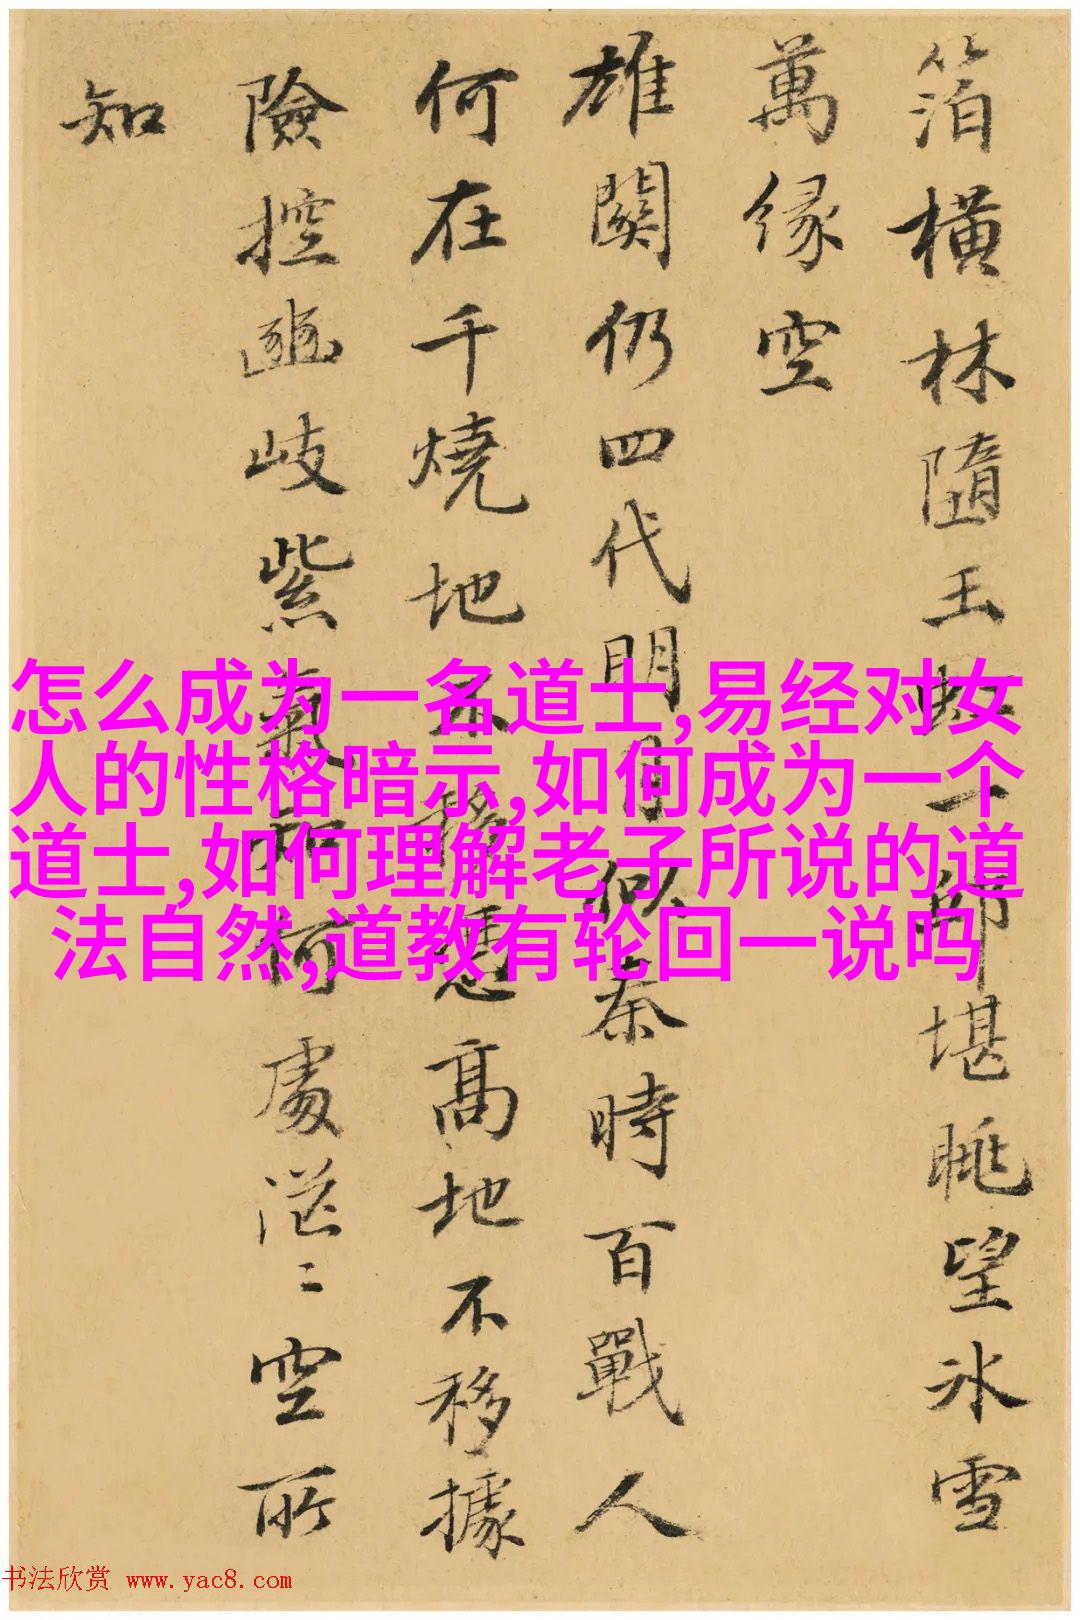 箔橫林隨玉虹一卽堪眺望冰雪
萬緣空
雄關仍四代明月似秦時百戰人
何在千燒地不移憑高地不移據
險控邠岐紫氣知何處茫〻空所
知
怎么成为一名道士,易经对女
人的性格暗示,如何成为一个
道士,如何理解老子所说的道
法自然,道教有轮回一说吗
书法欣赏 www.yac8.com